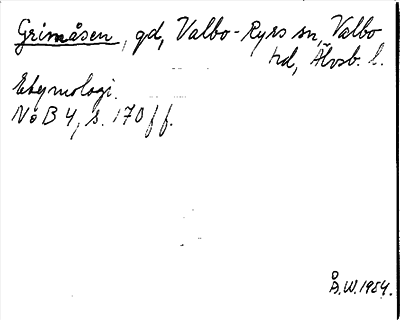 Grimåsen, gd, Valbo-Ryrs sn, Valbo
hd, Älvsb. l.
Etymologi.
NoB 4, s. 170 ff.
Å.W. 1954.